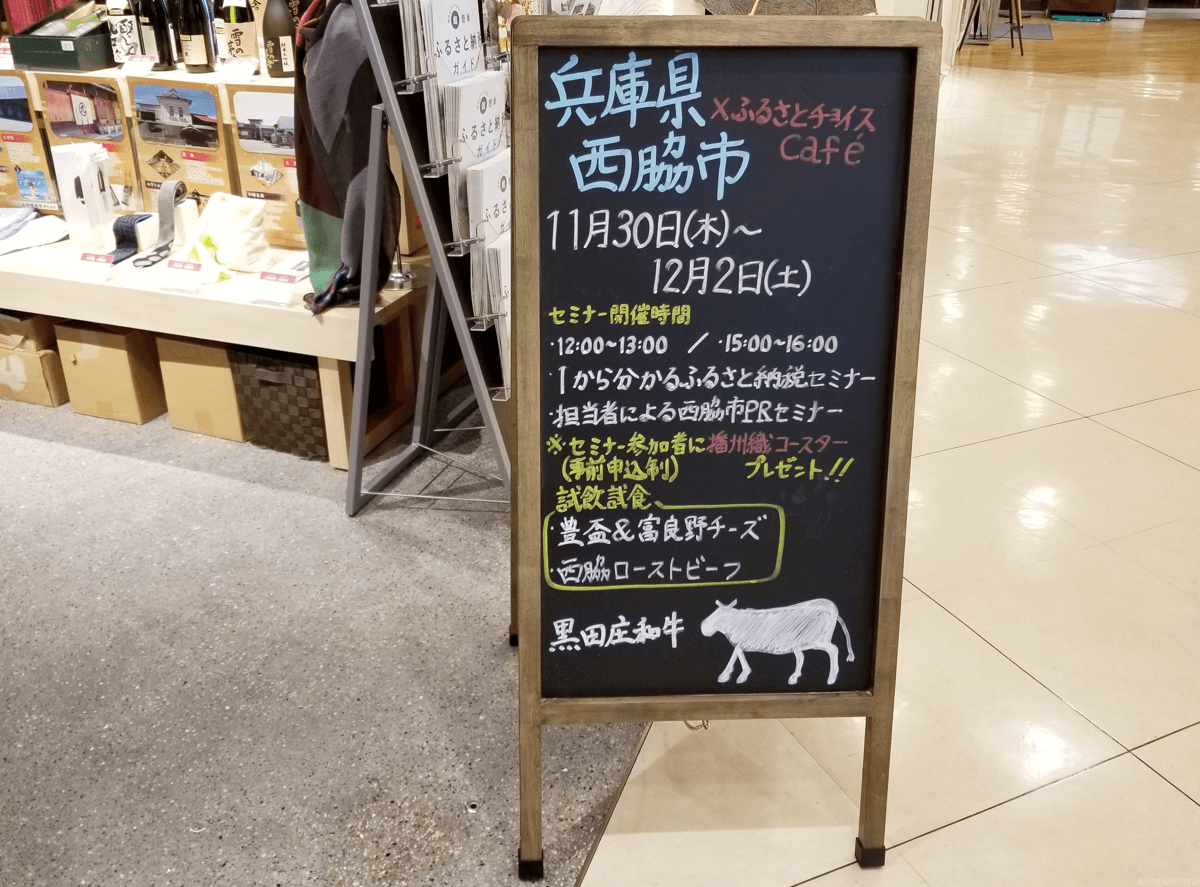 兵庫県
×ふるさとチョイス
Café
西脇市
11月30日(木)〜
12月2日(土)
セミナー開催時間
・12:00~13:00 / ・15:00~16:00
・1から分かるふるさと納税セミナー
・担当者による西脇市PRセミナー
※セミナー参加者に播州織コースター
(事前申込制) プレゼント!!
試飲試食
・豊盃&富良野チーズ
・西脇ローストビーフ
黒田庄和牛
ふるさと納税
ガイド
ふるさと納
ガイド